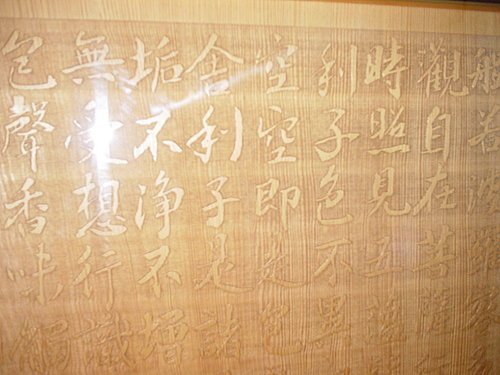 般若波羅
觀自在菩薩行
時照見五蘊
利子色不異
空空即是色
舍利子是諸
垢不淨不增
無受想行識
色聲香味觸